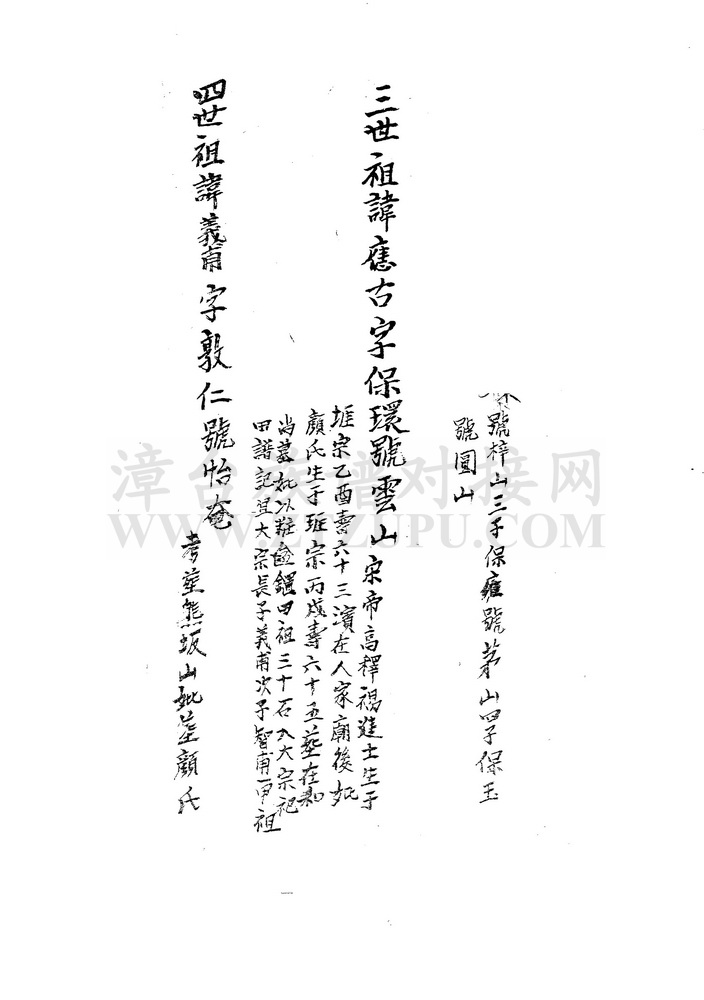 號梓山三子保雍號茅山四子保玉
號圓山
三世祖諱應古字保環號雲山宋帝高釋褐進士生于
宗乙酉壽六十三濱在人家廟後妣
顏氏生于班宗丙戌壽六十五墓在
尚墓妣以粧奩鐤田祖三十石入大宗祀
田譜記豆大宗長子義甫次子智甫一甲祖
四世祖諱義甫字敦仁號怡奄
考塟熊坂山妣塟顏氏
漳台族谱对接网
WWW.ZTZUPU.COM